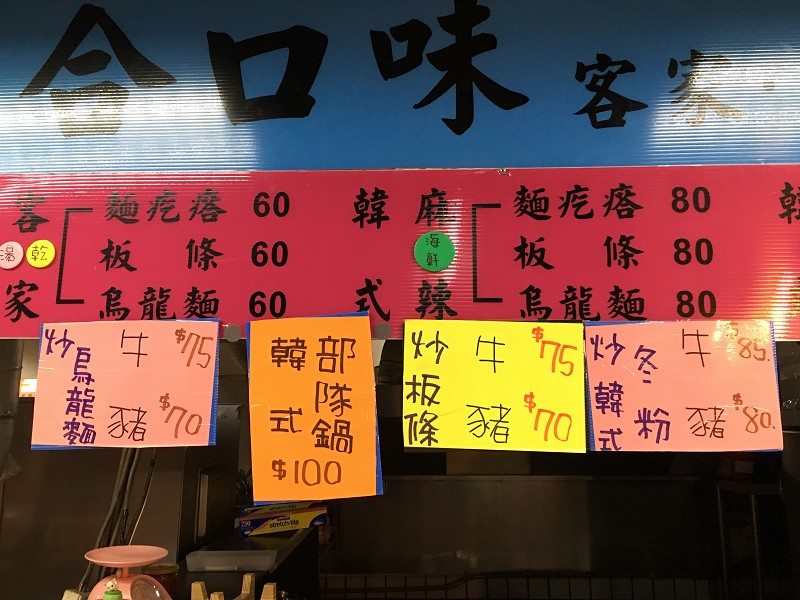 合口味 客家
客家
湯
乾
麵疙瘩 60
板條 60
烏龍麵 60
韓式
麻辣
海鮮
麵疙瘩 80
板條 80
烏龍麵 80
韓
炒烏龍麵
牛 $75
豬 $70
韓式
部隊鍋
$100
炒板條
牛 $75
豬 $70
炒韓式
冬粉
牛 $85.
豬 $80.
750
stretch-tite